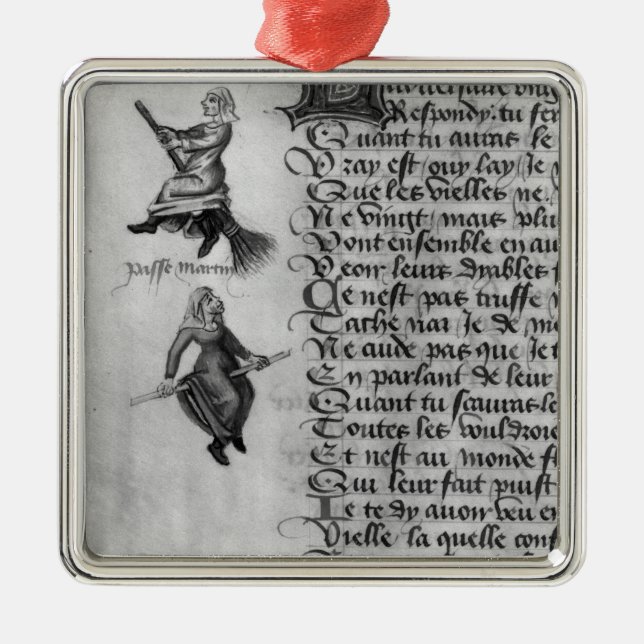 passe martin
Respondy . tu fer
Quant tu auras le
Vray est / ouy lay / Je
Que les vielles ne .
Ne vingt / mais plu
Vont ensemble en au
Veoir leurs dyables
Ce nest pas truffe
Tache nar Je de me
Ne cuide pas que Je
En parlant de leur
Quant tu scauras le
Toutes les vouldroie
Et nest au monde
Qui leur fait puist
Je te dy avoir veu en
Vielle la quelle conf